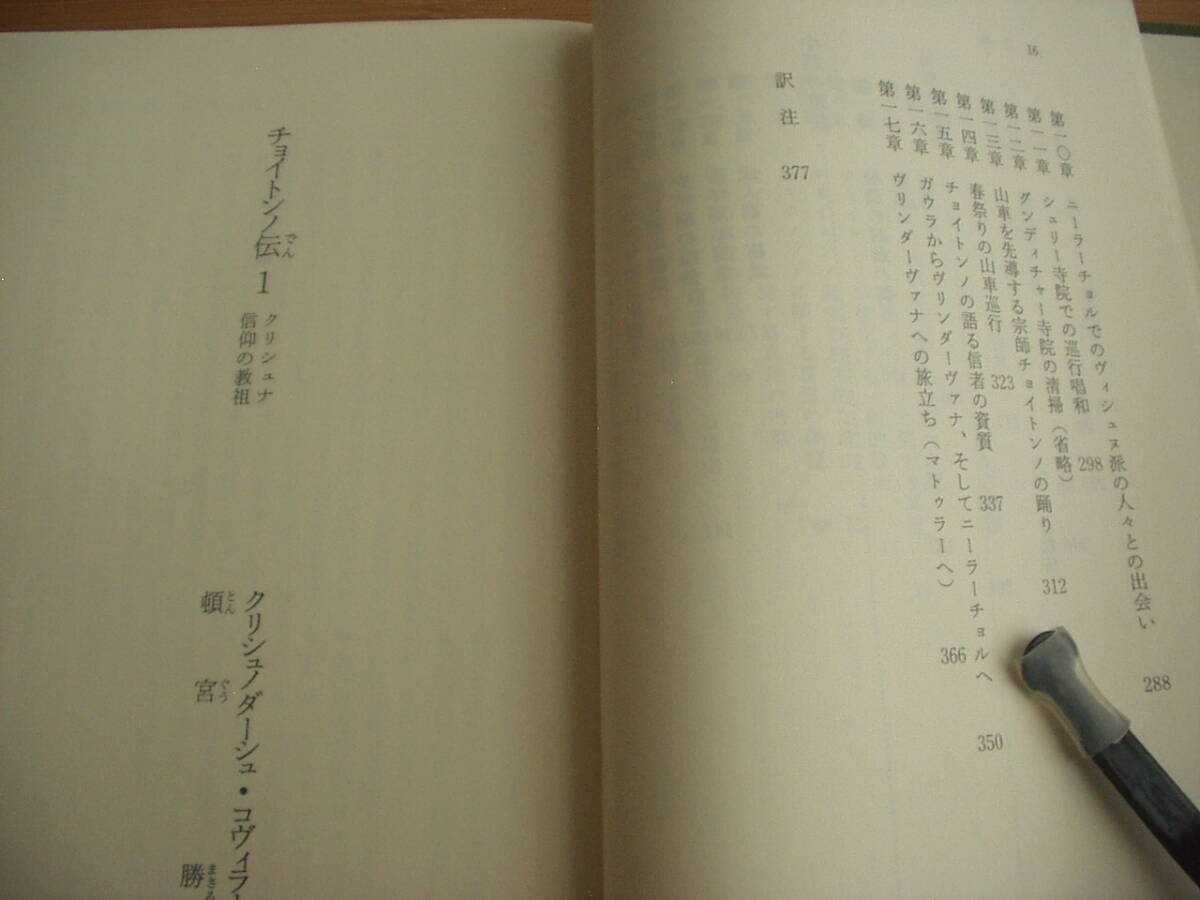 16
第一〇章 ニーラーチョルでのヴィシュヌ派の人々との出会い 288
第一一章 シュリー寺院での巡行唱和 298
第一二章 グンディチャー寺院の清掃（省略）
第一三章 山車を先導する宗師チョイトンノの踊り 312
第一四章 春祭りの山車巡行 323
第一五章 チョイトンノの語る信者の資質 337
第一六章 ガウラからヴリンダーヴァナ、そしてニーラーチョルへ 350
第一七章 ヴリンダーヴァナへの旅立ち（マトゥラーへ） 366
訳注 377
チョイトンノ伝 1 クリシュナ
でん
信仰の教祖
クリシュノダーシュ・コヴィラ
頓宮 勝
とん ぐう まさる